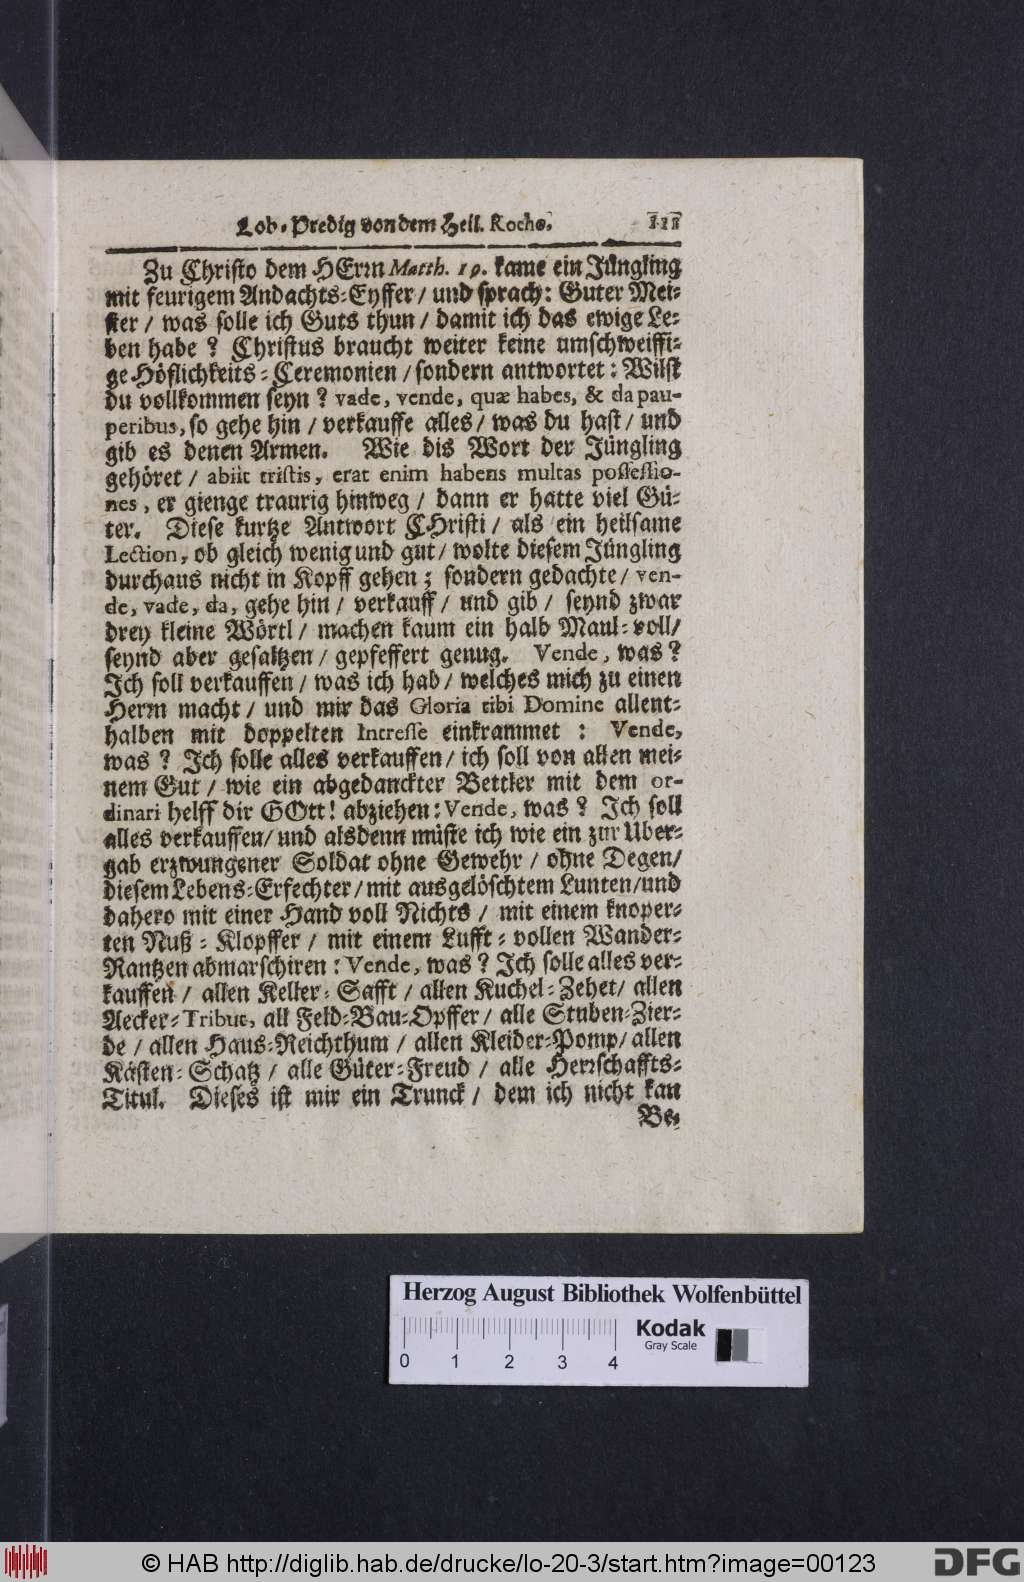 Lob-Predig von dem Heil. Rocho. 111
Zu Christo dem HErrn Matth. 19. kame ein Jüngling
mit feurigem Andachts-Eyffer / und sprach: Guter Mei-
ster / was solle ich Guts thun / damit ich das ewige Le-
ben habe ? Christus braucht weiter keine umschweiffi-
ge Höflichkeits-Ceremonien / sondern antwortet: Wilst
du vollkommen seyn ? vade, vende, quæ habes, & da pau-
peribus, so gehe hin / verkauffe alles / was du hast / und
gib es denen Armen. Wie dis Wort der Jüngling
gehöret / abiit tristis, erat enim habens multas possessio-
nes, er gienge traurig hinweg / dann er hatte viel Gü-
ter. Diese kurtze Antwort CHristi / als ein heilsame
Lection, ob gleich wenig und gut / wolte diesem Jüngling
durchaus nicht in Kopff gehen ; sondern gedachte / ven-
de, vade, da, gehe hin / verkauff / und gib / seynd zwar
drey kleine Wörtl / machen kaum ein halb Maul-voll/
seynd aber gesaltzen / gepfeffert genug. Vende, was ?
Ich soll verkauffen / was ich hab / welches mich zu einen
Herrn macht / und mir das Gloria tibi Domine allent-
halben mit doppelten Intresse einkrammet : Vende,
was ? Ich solle alles verkauffen / ich soll von allen mei-
nem Gut / wie ein abgedanckter Bettler mit dem or-
dinari helff dir GOtt! abziehen: Vende, was ? Ich soll
alles verkauffen/ und alsdenn müste ich wie ein zur Uber-
gab erzwungener Soldat ohne Gewehr / ohne Degen/
diesem Lebens-Erfechter / mit ausgelöschtem Lunten/und
dahero mit einer Hand voll Nichts / mit einem knoper-
ten Nuß-Klopffer / mit einem Lufft-vollen Wander-
Rantzen abmarschiren : Vende, was ? Ich solle alles ver-
kauffen / allen Keller-Safft / allen Kuchel-Zehet/ allen
Aecker-Tribut, all Feld-Bau-Opffer / alle Stuben-Zier-
de / allen Haus-Reichthum / allen Kleider-Pomp/ allen
Kästen-Schatz / alle Güter-Freud / alle Herrschaffts-
Titul. Dieses ist mir ein Trunck / dem ich nicht kan
Be-
Herzog August Bibliothek Wolfenbüttel
Kodak
Gray Scale
0 1 2 3 4
© HAB http://diglib.hab.de/drucke/lo-20-3/start.htm?image=00123
DFG